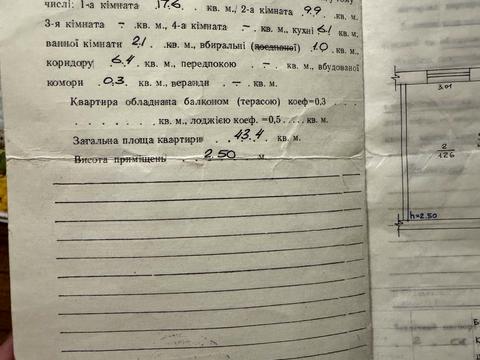 числі: 1-а кімната 17.6 . кв. м., 2-а кімната 9.9 . кв. м.
3-я кімната – . кв. м., 4-а кімната – . кв. м., кухні 6.1 кв. м.
ванної кімнати 2.1 . кв. м., вбиральні (поєднаної) 1.0 кв. м.
коридору 6.4 кв. м., передпокою . – . кв. м., вбудованої
комори 0.3 кв. м., веранди . – . кв. м.
Квартира обладнана балконом (терасою) коеф=0,3 . . .
. . . . . . . кв. м., лоджією коеф. =0,5 . . . . кв. м.
Загальна площа квартири 43.4 кв. м.
Висота приміщень 2.50 м
3.01
2
12.6
h=2.50